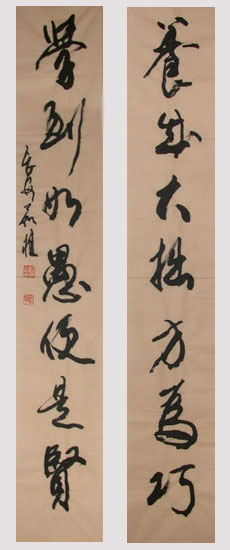 養成大拙方為巧
學到如愚便是賢